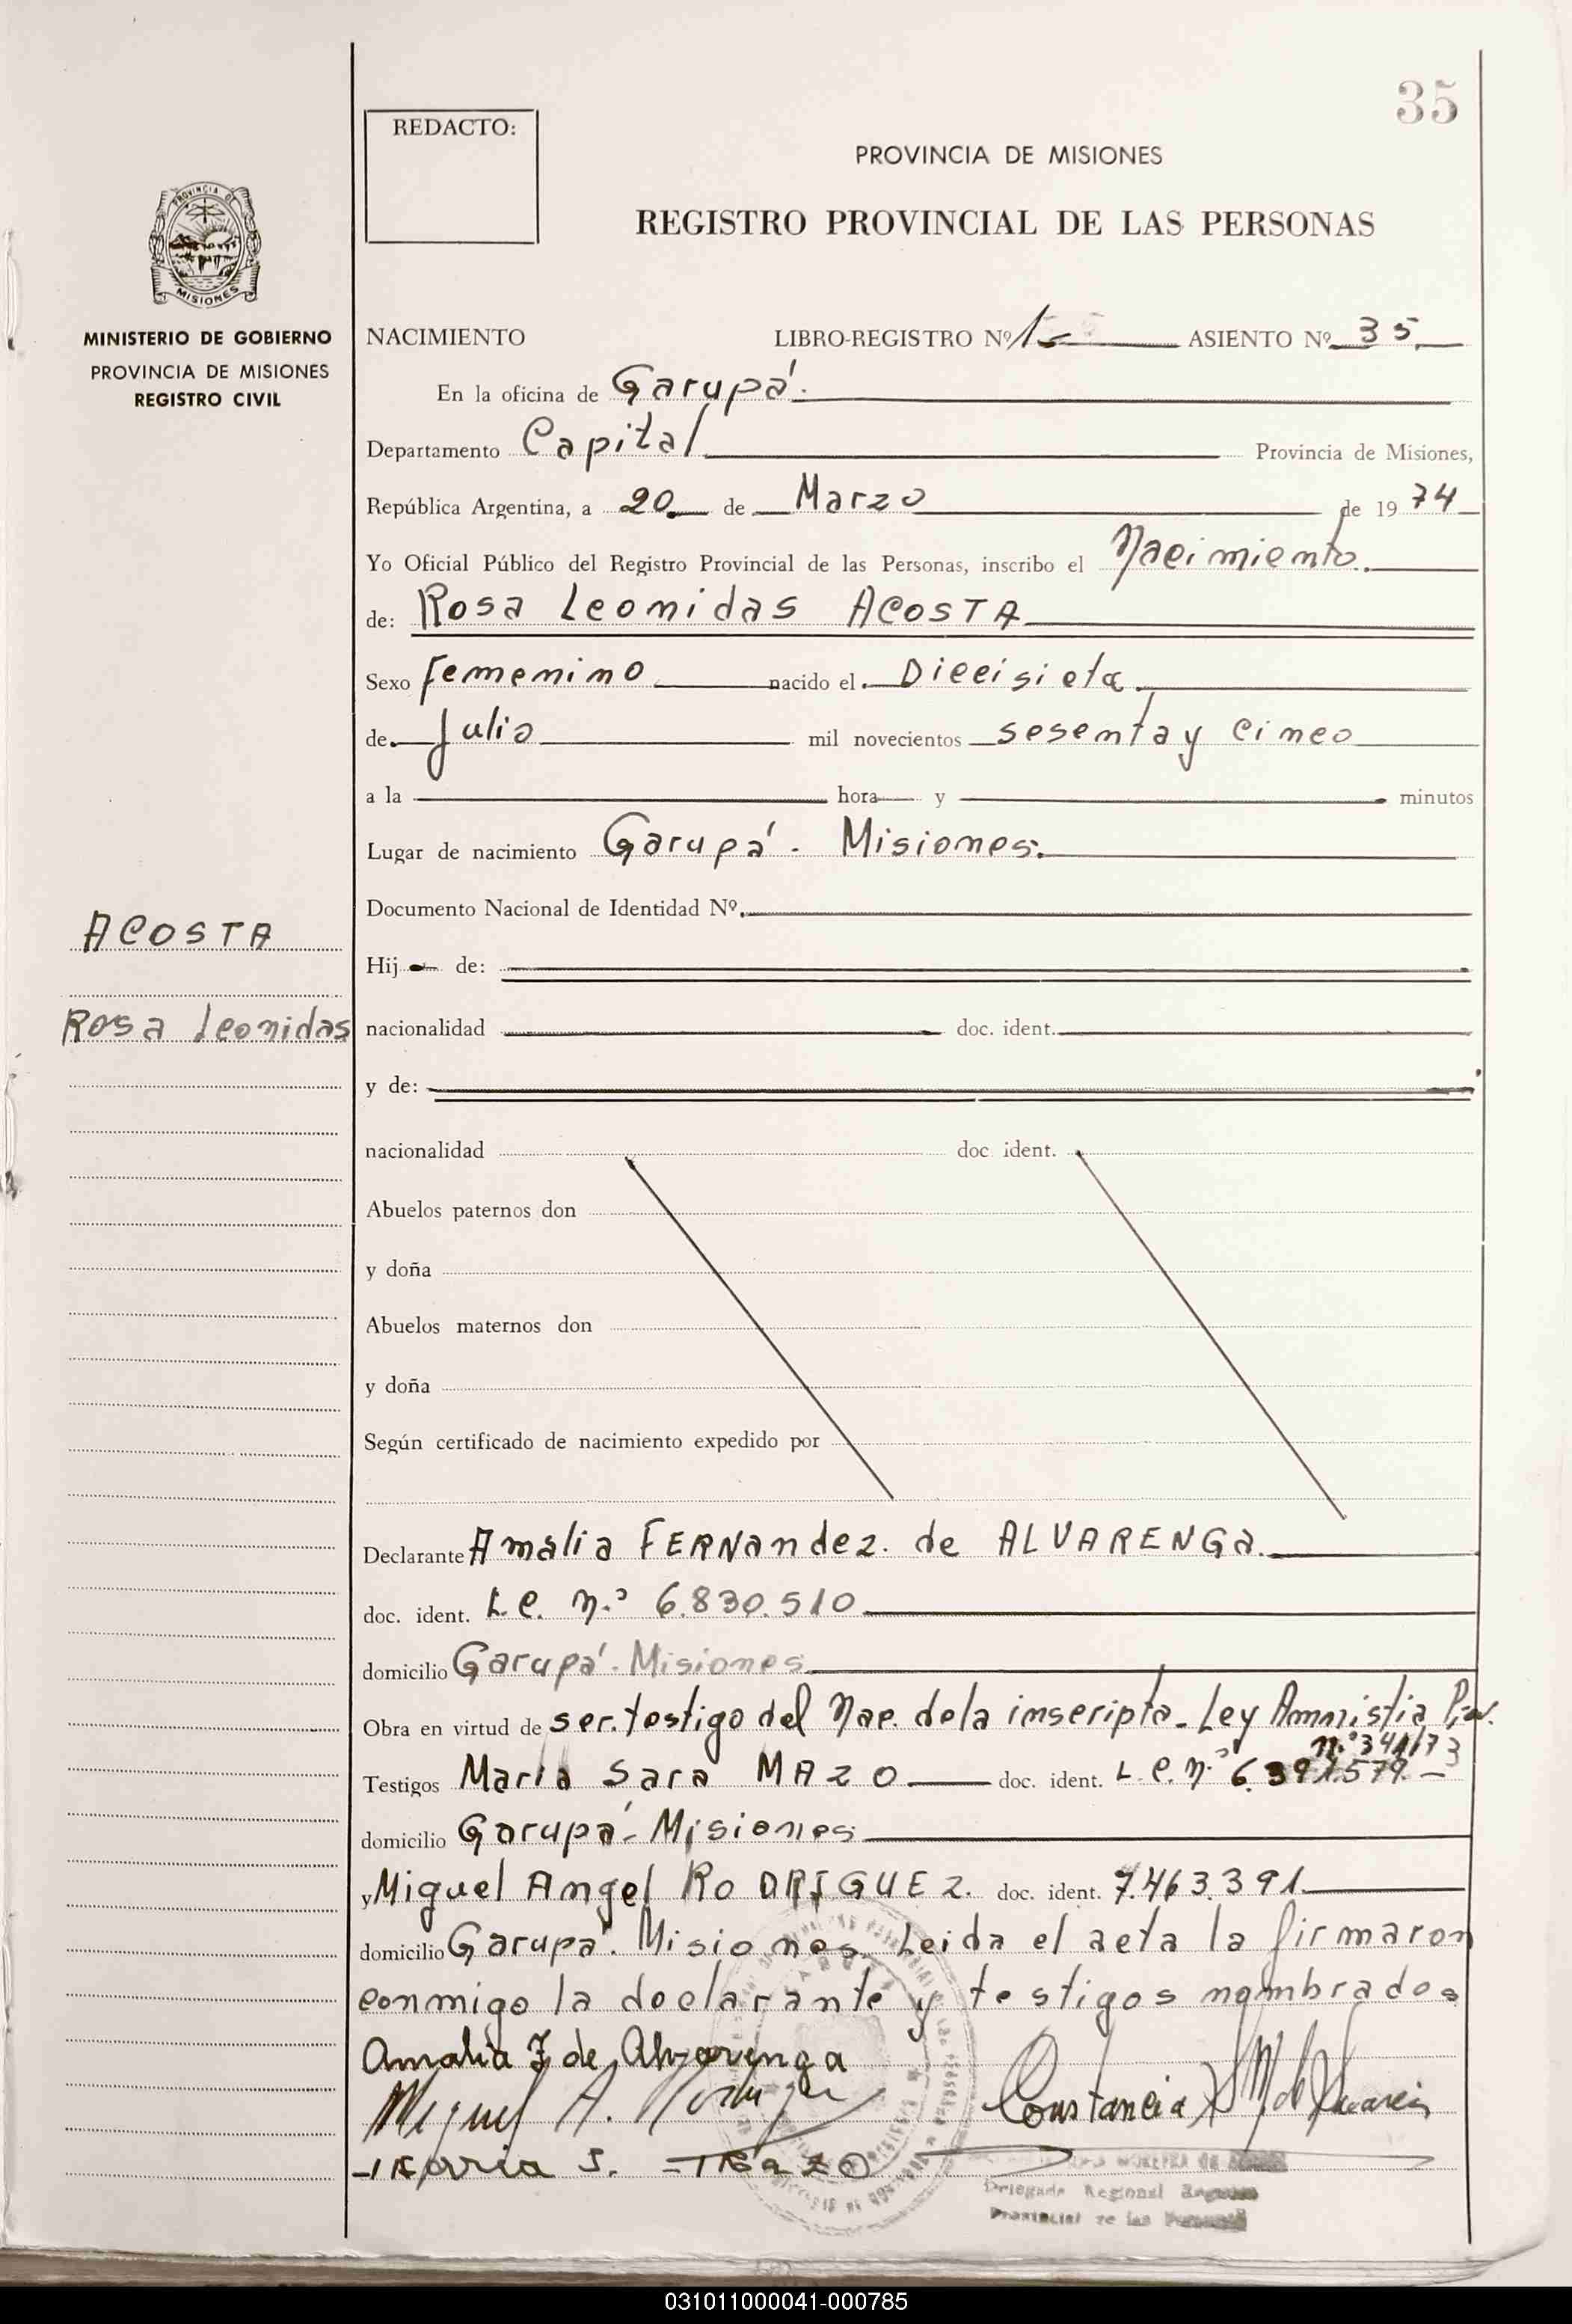 35
REDACTO:
PROVINCIA DE MISIONES
REGISTRO PROVINCIAL DE LAS PERSONAS
PROVINCIA DE
MISIONES
MINISTERIO DE GOBIERNO
PROVINCIA DE MISIONES
REGISTRO CIVIL
NACIMIENTO LIBRO-REGISTRO Nº 1 ASIENTO Nº 35
En la oficina de Garupá.
Departamento Capital Provincia de Misiones,
República Argentina, a 20 de Marzo de 1974
Yo Oficial Público del Registro Provincial de las Personas, inscribo el Nacimiento.
de: Rosa Leonidas ACOSTA
Sexo femenino nacido el Diecisiete
de Julio mil novecientos sesenta y cinco
a la hora y minutos
Lugar de nacimiento Garupá. Misiones.
Documento Nacional de Identidad Nº
ACOSTA
Hij de:
Rosa Leonidas
nacionalidad doc. ident.
y de:
nacionalidad doc ident.
Abuelos paternos don
y doña
Abuelos maternos don
y doña
Según certificado de nacimiento expedido por
Declarante Amalia FERNandez. de ALVARENGa.
doc. ident. L.C. n.º 6.830.510
domicilio Garupá. Misiones
Obra en virtud de ser. testigo del Nac. de la inscripta. Ley Amnistia Prov.
n.º 341/73
Testigos Maria Sara MAZO doc. ident. L.C. nº 6.391.579.
domicilio Garupá. Misiones
y Miguel Angel RoDRIGUEZ. doc. ident. 7.463.391.
domicilio Garupá. Misiones. Leida el acta la firmaron
conmigo la declarante y testigos nombrados
Amalia F de Alvarenga
Miguel A.
Constancia M. de
Maria S. Mazo
Delegada Regional
Provincial de las
031011000041-000785